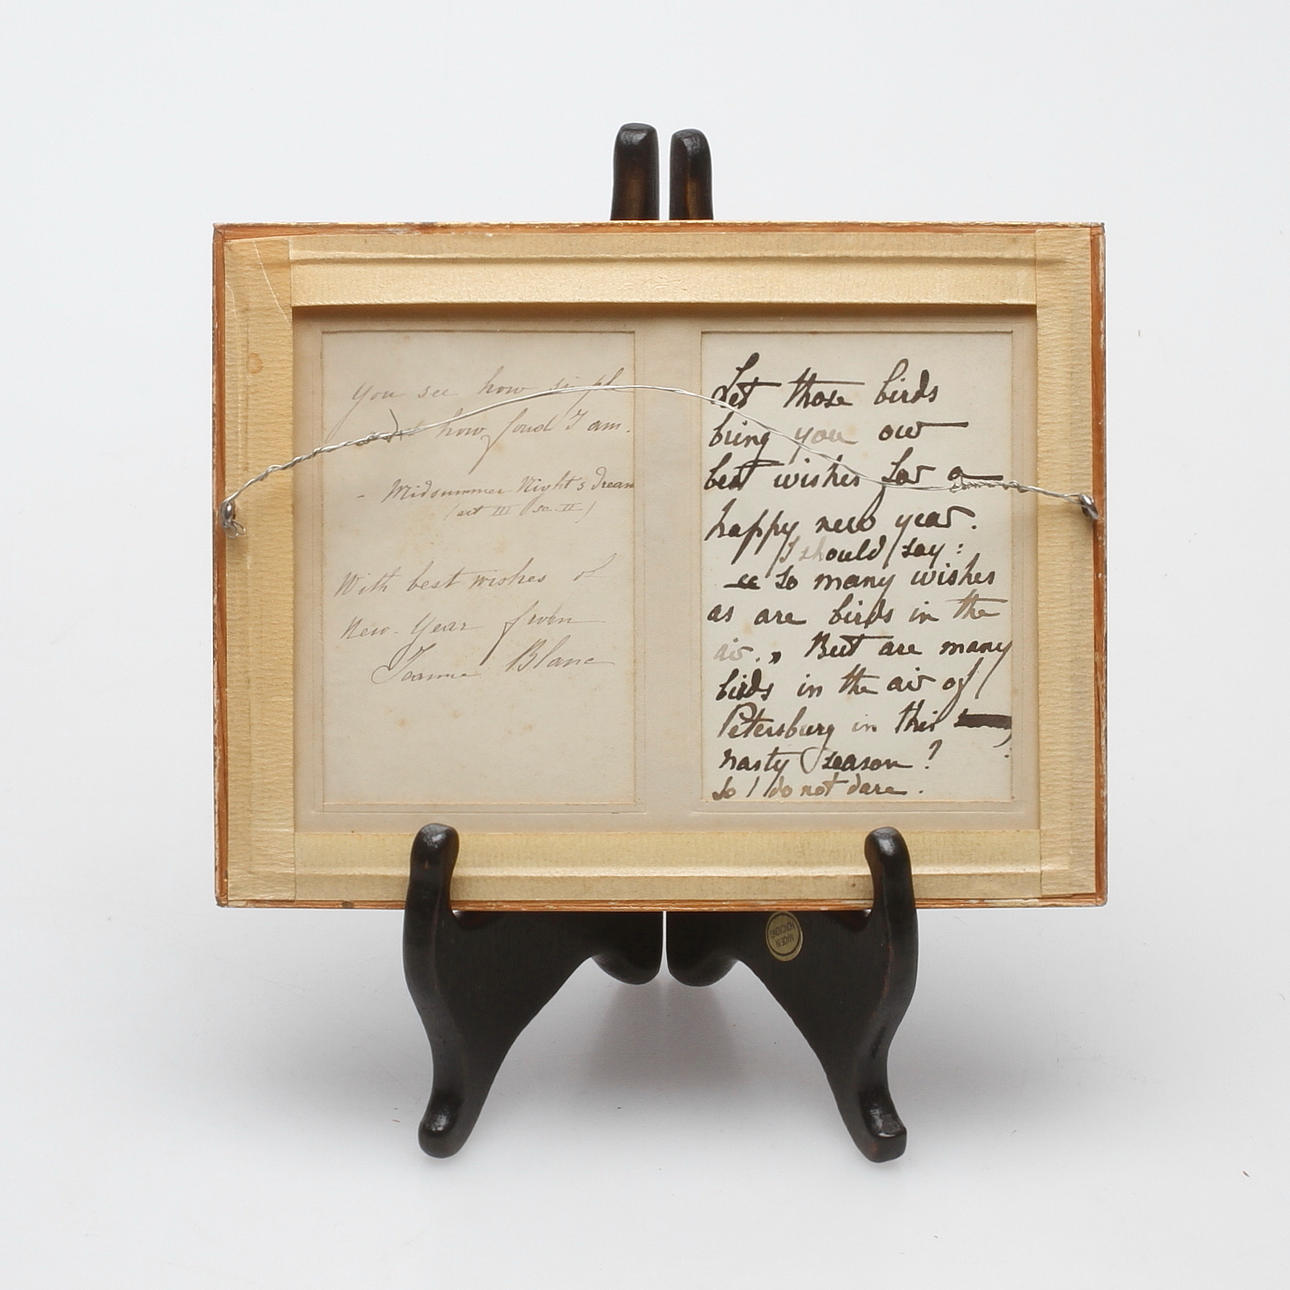 You see how simple
and how fond I am.
- Midsummer Night's Dream
(act III sc. II)
With best wishes of
New-Year from
Jeanne Blanc
Let those birds
bring you our
best wishes for a
happy new year.
I should say:
„ So many wishes
as are birds in the
air. „ But are many
birds in the air of
Petersburg in this
nasty season?
So I do not dare.
MADE IN
HONG KONG